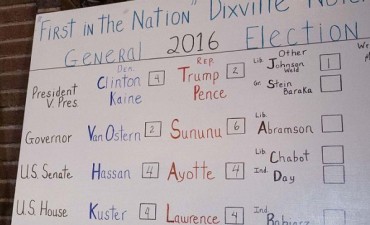 "First in the "Nation" Dixville
General 2016 Election
Dem. Rep. Other
President V. Pres. Clinton Kaine 4 Trump Pence 2 Lib Johnson Weld 1
Gr. Stein Baraka
Governor Van Ostern 2 Sununu 6 Lib Abramson
U.S. Senate Hassan 4 Ayotte 4 Lib Chabot
Ind. Day
U.S. House Kuster 4 Lawrence 4 Ind